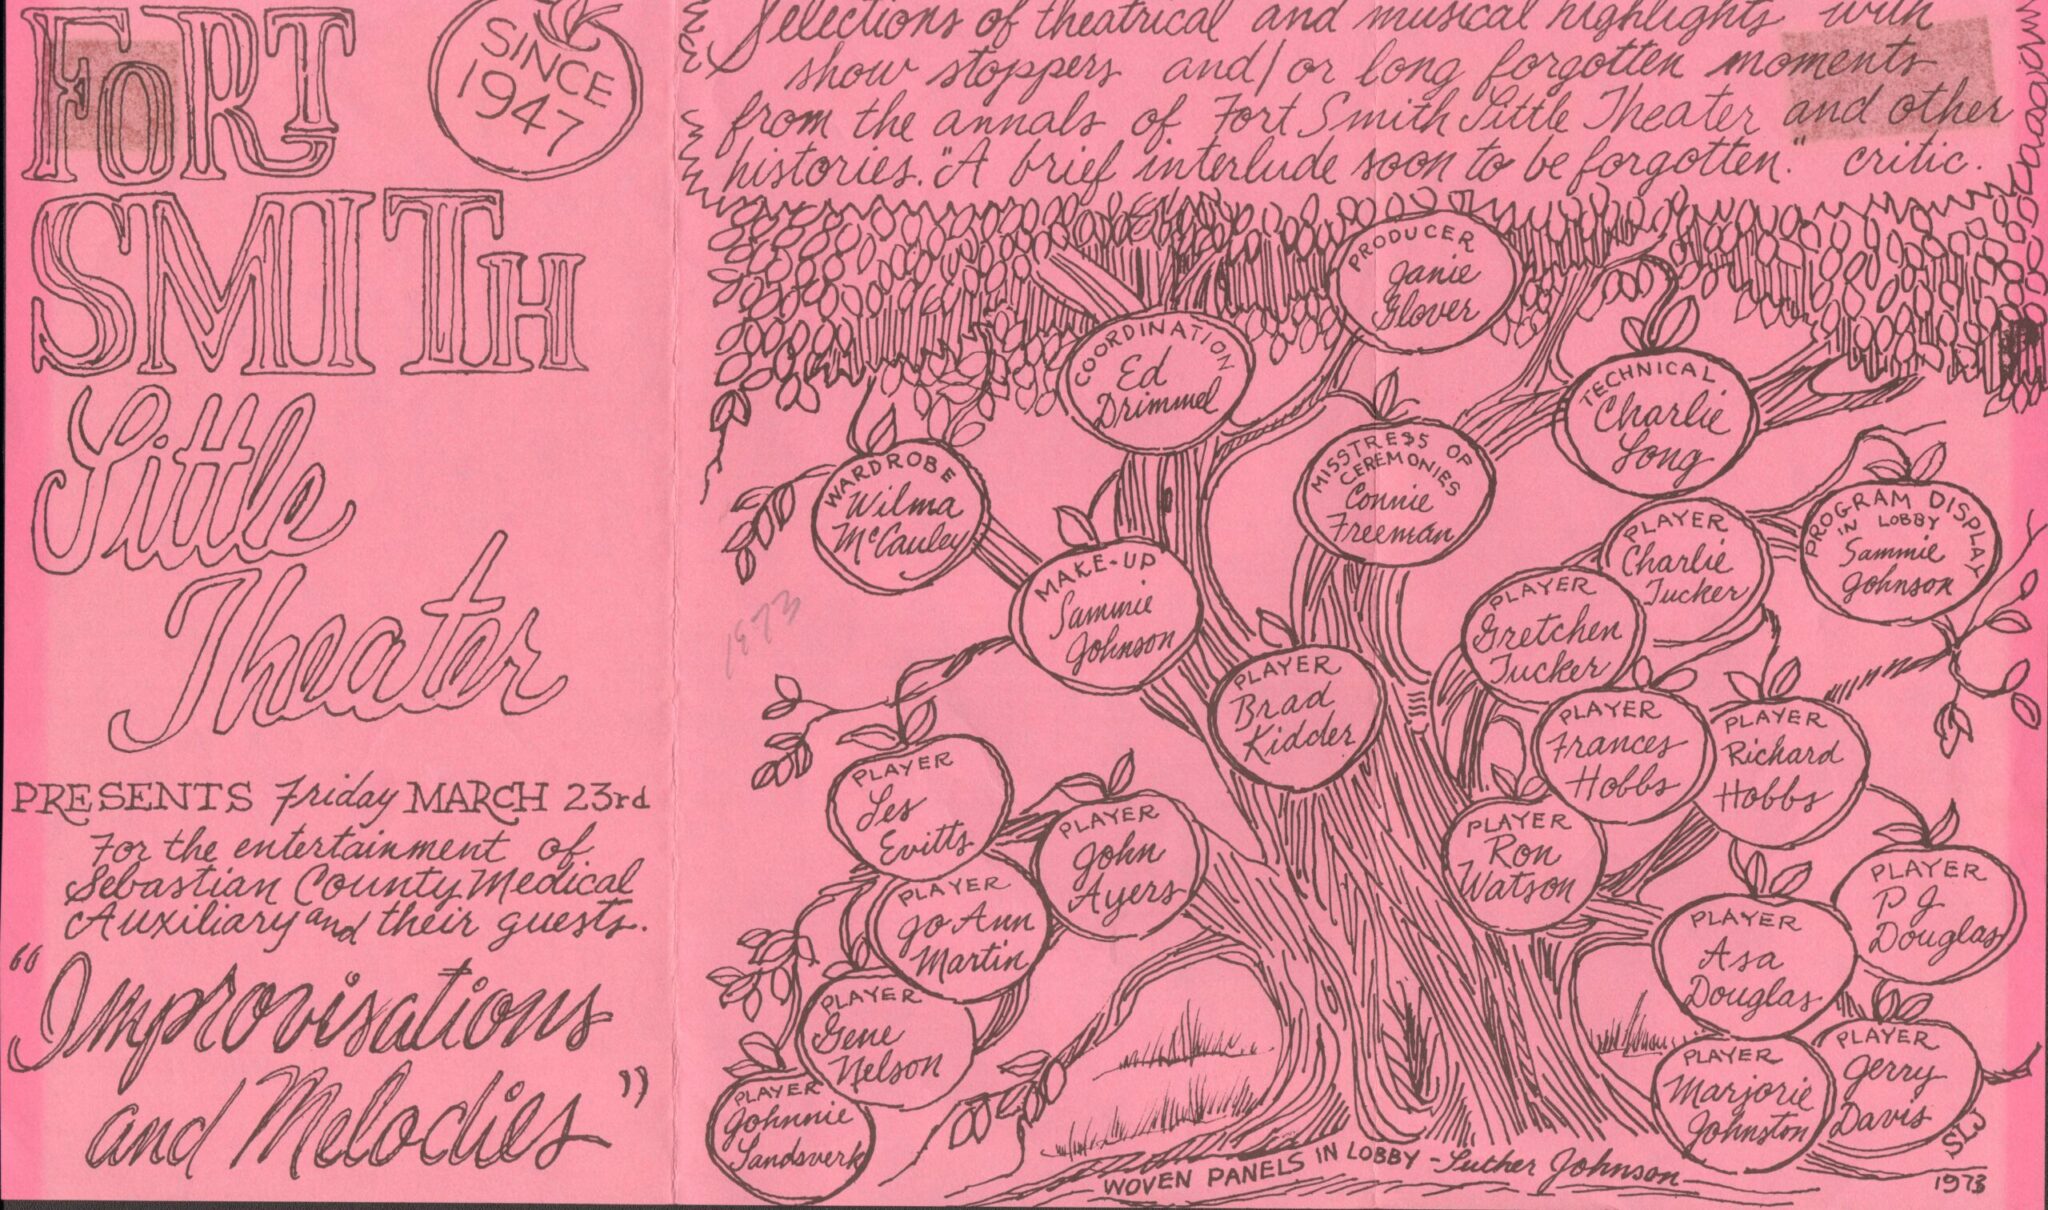 FORT
SMITH
Little
Theater
SINCE
1947
PRESENTS Friday MARCH 23rd
For the entertainment of
Sebastian County Medical
Auxiliary and their guests.
"Improvisations
and Melodies"
Selections of theatrical and musical highlights with
show stoppers and/or long forgotten moments
from the annals of Fort Smith Little Theater and other
histories. "A brief interlude soon to be forgotten." critic.
PRODUCER
Janie
Glover
COORDINATION
Ed
Drimmel
TECHNICAL
Charlie
Long
MISSTRESS OF
CEREMONIES
Connie
Freeman
WARDROBE
Wilma
McCauley
PROGRAM DISPLAY
IN LOBBY
Sammie
Johnson
PLAYER
Charlie
Tucker
MAKE-UP
Sammie
Johnson
PLAYER
Gretchen
Tucker
1973
PLAYER
Brad
Kidder
PLAYER
Frances
Hobbs
PLAYER
Richard
Hobbs
PLAYER
Les
Evitts
PLAYER
John
Ayers
PLAYER
Ron
Watson
PLAYER
P J
Douglas
PLAYER
Jo Ann
Martin
PLAYER
Asa
Douglas
PLAYER
Gene
Nelson
PLAYER
Marjorie
Johnston
PLAYER
Jerry
Davis
PLAYER
Johnnie
Sandsverk
WOVEN PANELS IN LOBBY - Luther Johnson
1973